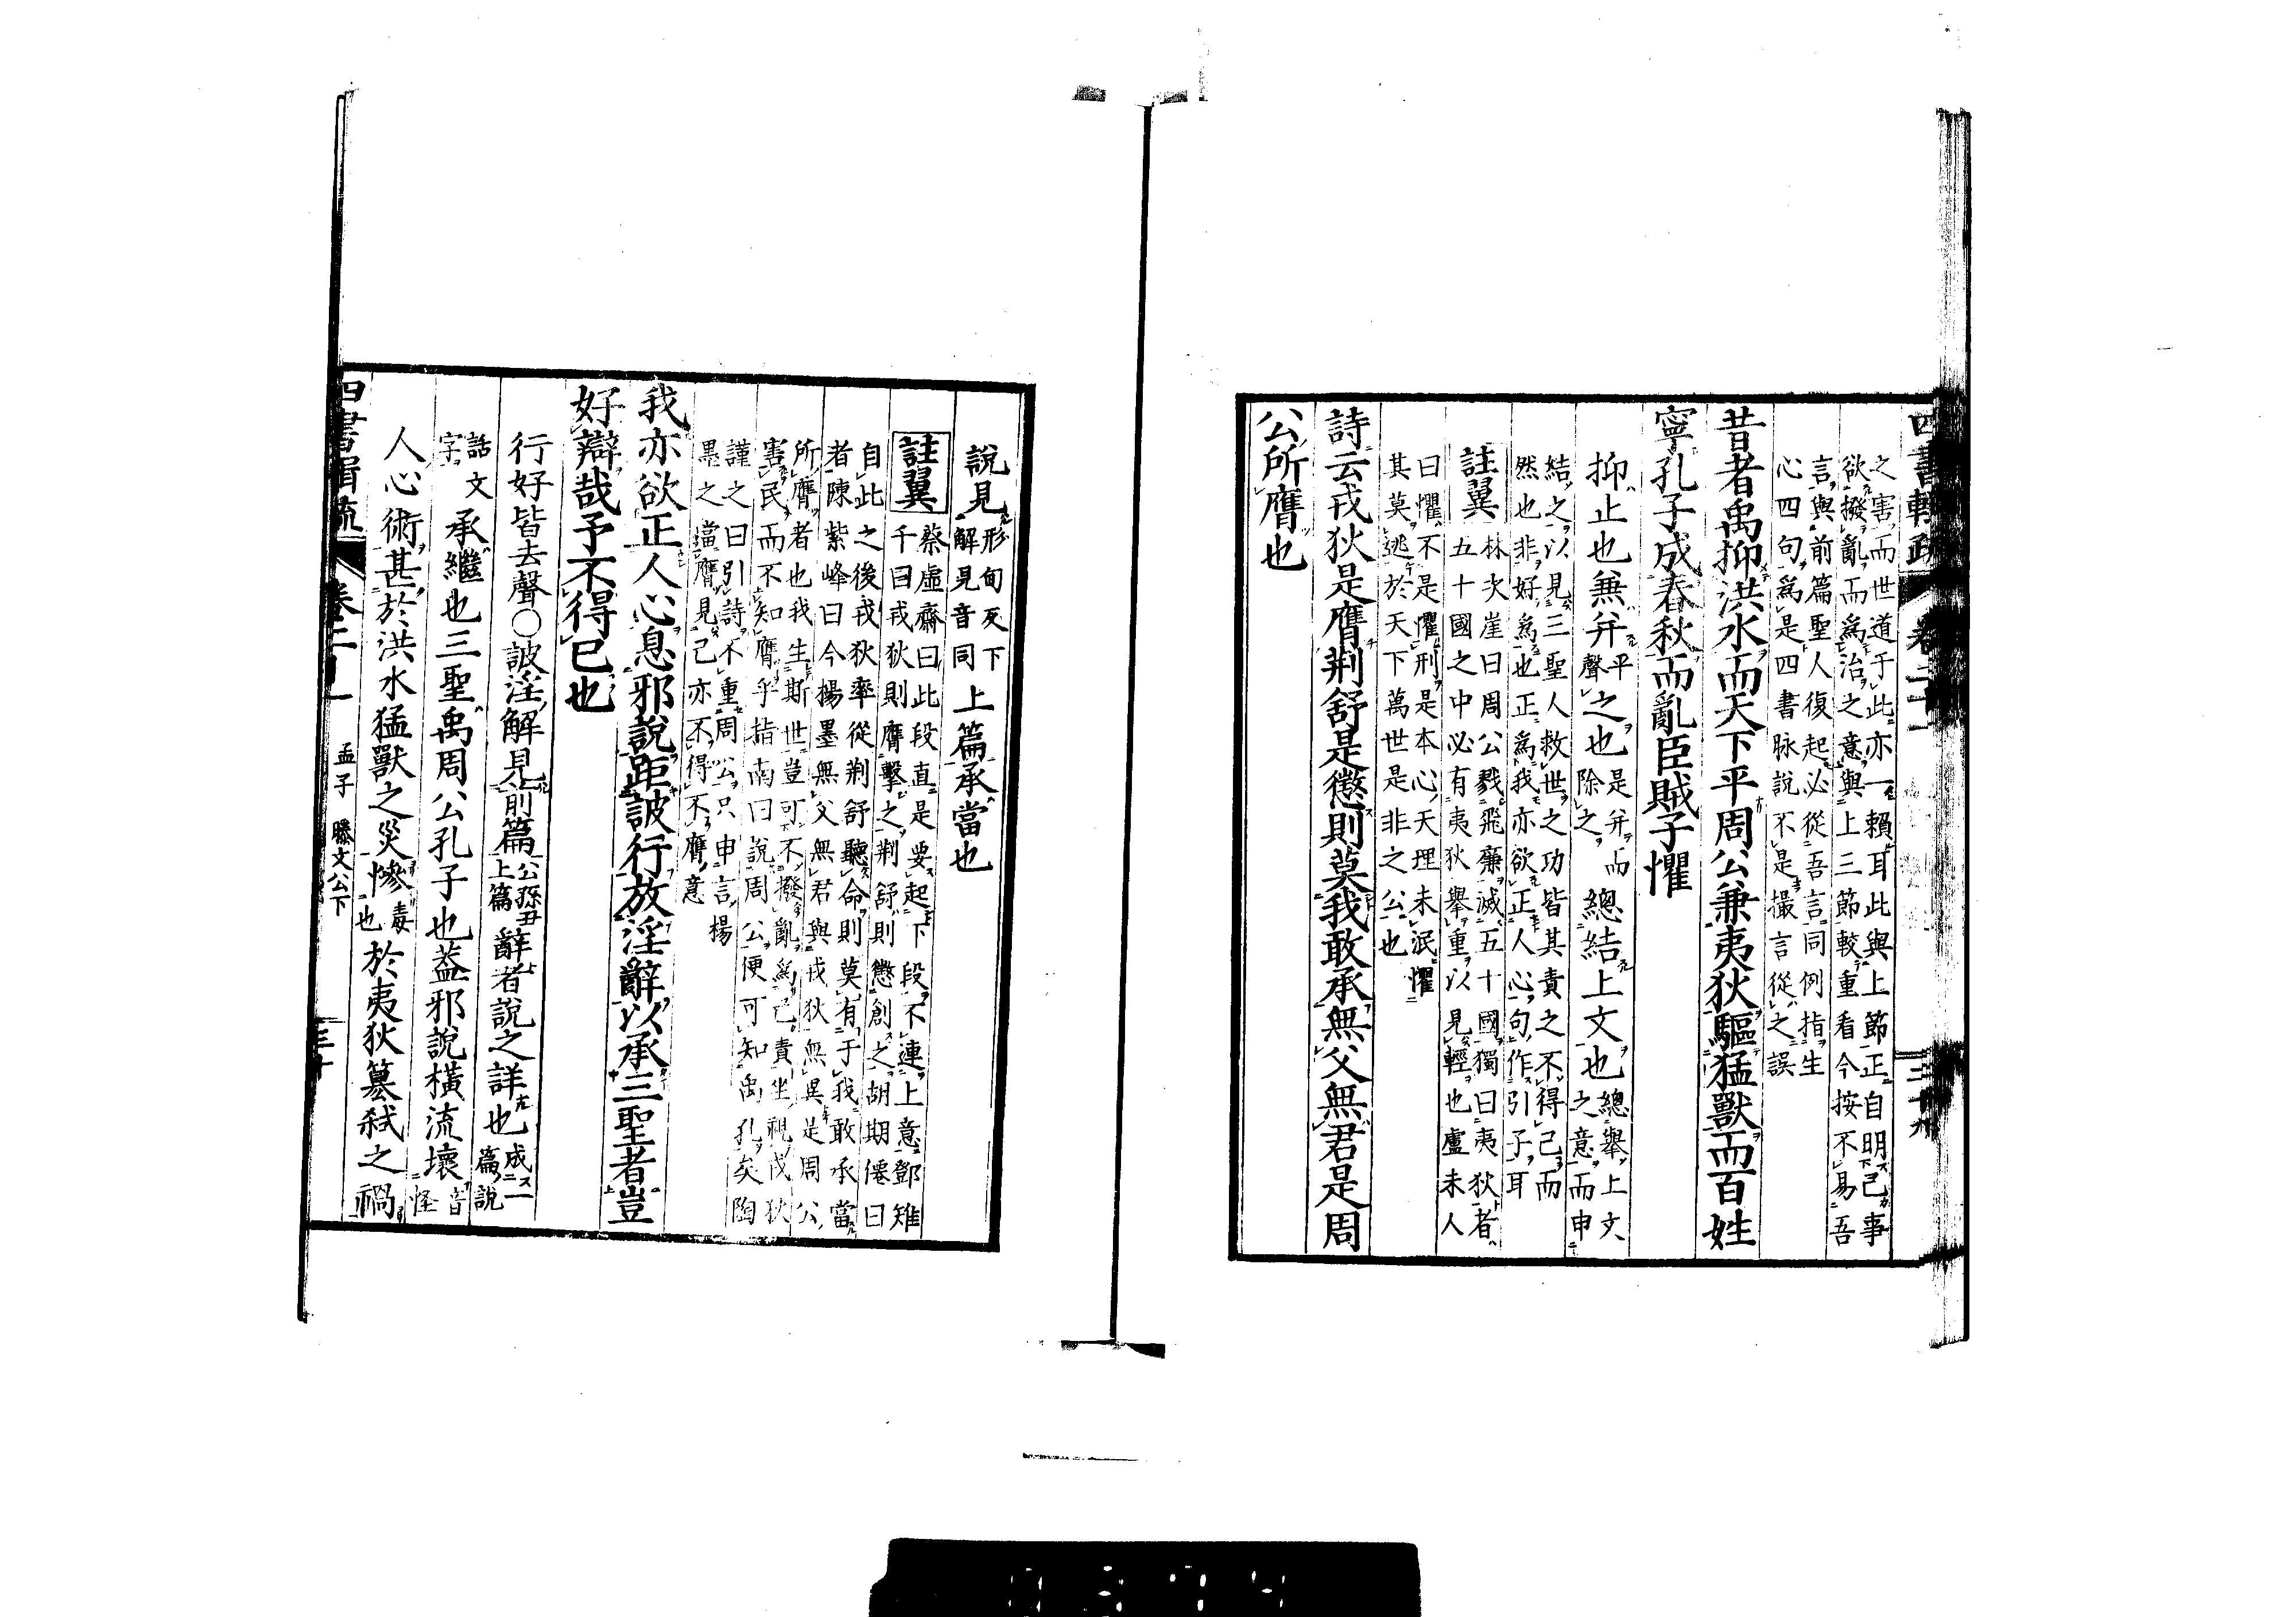 之害而世道于此亦一賴耳此與上節正自明己事
欲撥亂而爲治之意與上三節較重看今按不易吾
言與前篇聖人復起必從吾言同例指生
心四句爲是四書脉說不是撮言從之誤
昔者禹抑洪水而天下平周公兼夷狄驅猛獸而百姓
寧孔子成春秋而亂臣賊子懼
抑止也兼幷平聲之也是幷而除之總結上文也總舉上文之意而申
結之以見三聖人救世之功皆其責之不得已而
然也非好爲也正爲我亦欲正人心句作引子耳
註翼
林次崖曰周公戮飛廉滅五十國獨曰夷狄者
五十國之中必有夷狄舉重以見輕也盧未人
曰懼不是懼刑是本心天理未泯懼
其莫逃於天下萬世是非之公也
詩云戎狄是膺荆舒是懲則莫我敢承無父無君是周
公所膺也
說見形甸反下解見音同上篇承當也
註翼
蔡虛齋曰此段直是要起下段不連上意鄧雉
千曰戎狄則膺擊之荆舒則懲創之胡期僊曰
自此之後戎狄率從荆舒聽命則莫有于我敢承當
者陳紫峰曰今楊墨無父無君與戎狄無異是周公
所膺者也我生斯世豈可不撥亂爲己責坐視戎狄
害民而不知膺乎指南曰說周公便可知禹孔矣陶
謹之曰引詩不重周公只申言楊
墨之當膺見己亦不得不膺意
我亦欲正人心息邪說距詖行放淫辭以承三聖者豈
好辯哉予不得已也
行好皆去聲○詖淫解見前篇公孫丑上篇辭者說之詳也成二一篇說
話文字承繼也三聖禹周公孔子也蓋邪說橫流壞音怪
人心術甚於洪水猛獸之災慘毒也於夷狄篡弑之禍
孟子 滕文公下